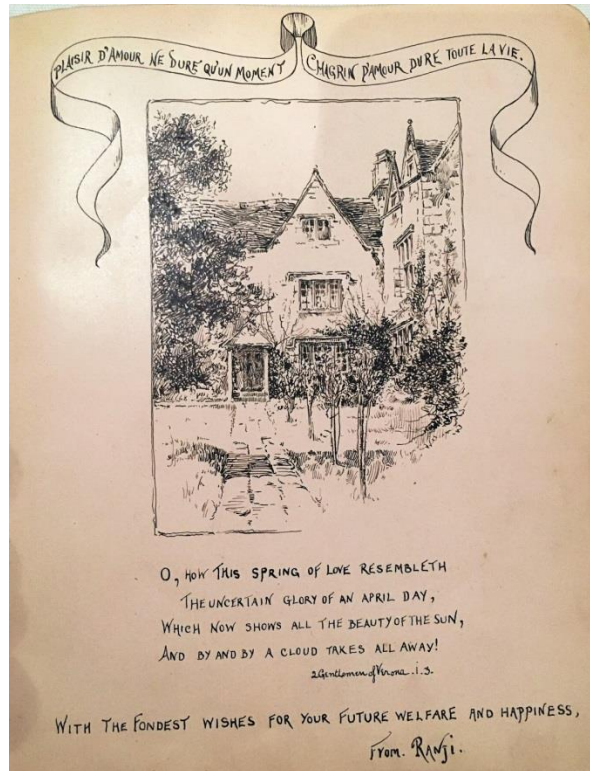 PLAISIR D'AMOUR NE DURE QU'UN MOMENT
CHAGRIN D'AMOUR DURE TOUTE LA VIE.
O, HOW THIS SPRING OF LOVE RESEMBLETH
THE UNCERTAIN GLORY OF AN APRIL DAY,
WHICH NOW SHOWS ALL THE BEAUTY OF THE SUN,
AND BY AND BY A CLOUD TAKES ALL AWAY!
2 Gentlemen of Verona. i. 3.
WITH THE FONDEST WISHES FOR YOUR FUTURE WELFARE AND HAPPINESS,
From. RANJI.